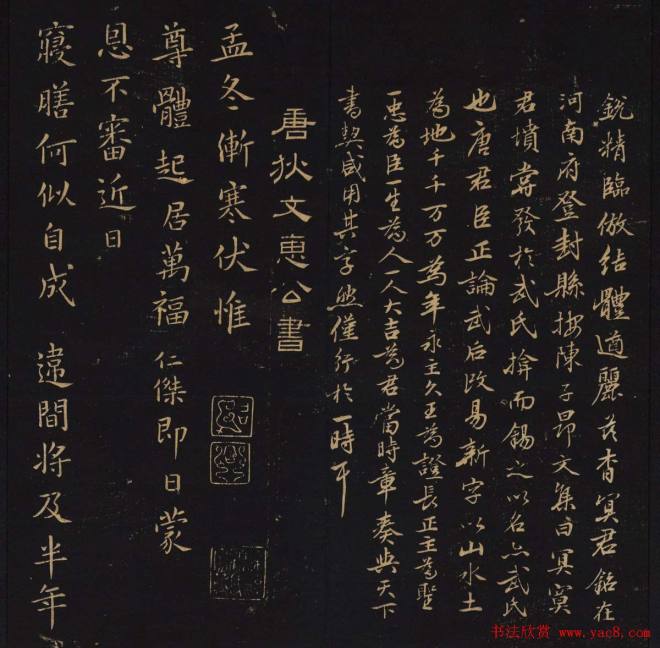 銳精臨倣結體遒麗若杳冥君銘在
河南府登封縣按陳子昂文集曰冥寞
君墳嘗發於武氏揜而錫之以名亦武氏
也唐君臣正論武后改易新字以山水土
為地千千万万為年永主久王為證長正主為聖
一忠為臣一生為人一人大吉為君當時章奏與天下
書契咸用其字然僅行於一時耳
唐狄文惠公書
孟冬漸寒伏惟
尊體起居萬福仁傑即日蒙
恩不審近日
寢膳何似自成 違間將及半年
书法欣赏 www.yac8.com